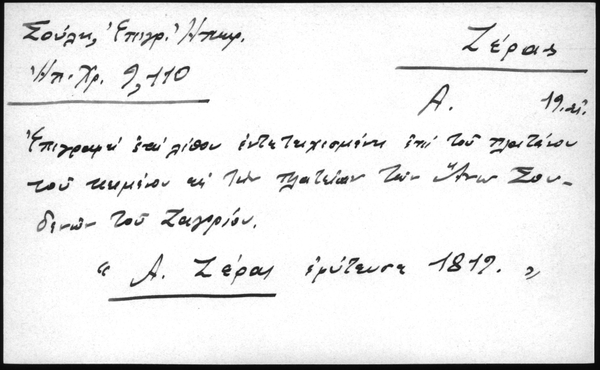 Σούλης, Ἐπιγρ. Ἠπειρ.
Ἠπ. Χρ. 9, 110
Ζέρας
Α. 19. αἰ.
Ἐπιγραφὴ ἐπὶ λίθου ἐντετειχισμένη ἐπὶ τοῦ πλατάνου
τοῦ κειμένου εἰς τὴν πλατεῖαν τῶν Ἄνω Σου-
δενῶν τοῦ Ζαγορίου.
" Α. Ζέρας ἐφύτευσε 1819. "